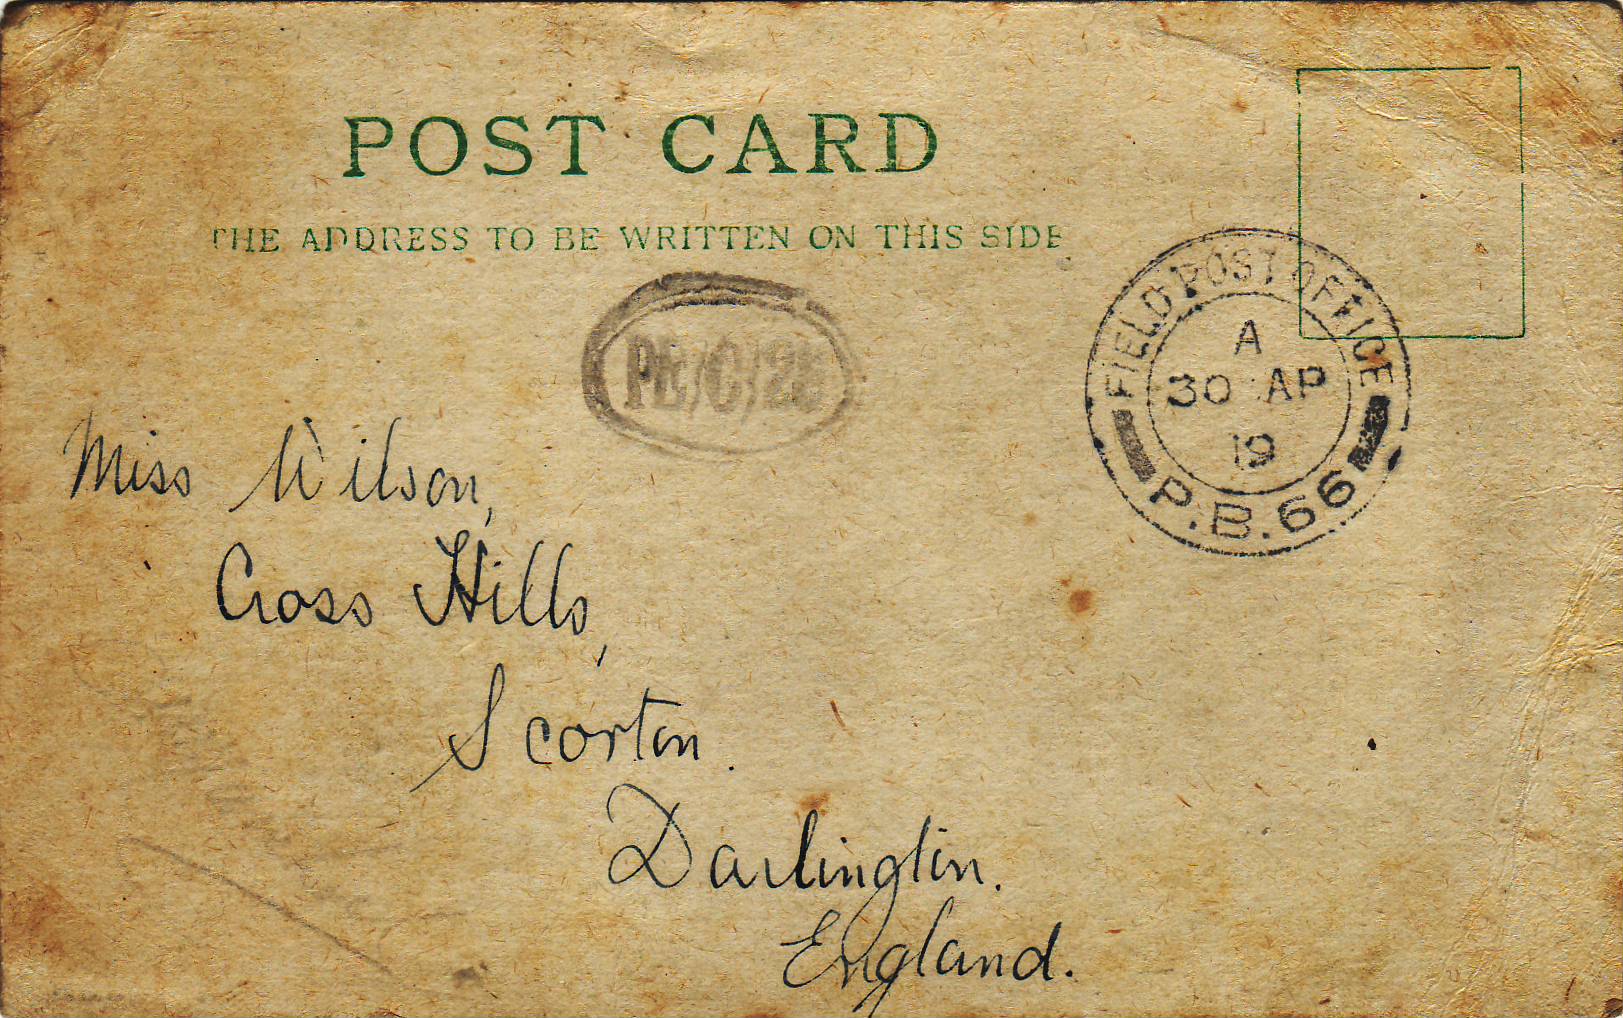 POST CARD
THE ADDRESS TO BE WRITTEN ON THIS SIDE
FIELD POST OFFICE
A
30 AP
19
P.B.66
Miss Wilson,
Cross Hills,
Scorton.
Darlington.
England.